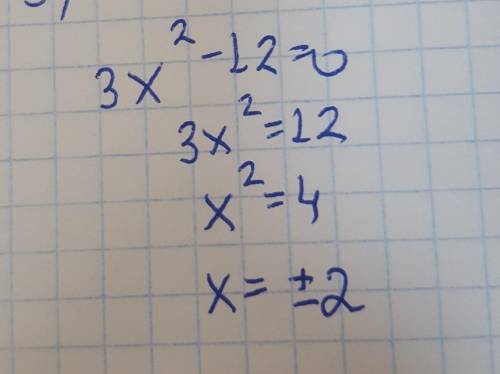 3x² - 12 = 0
3x² = 12
x² = 4
x = ± 2